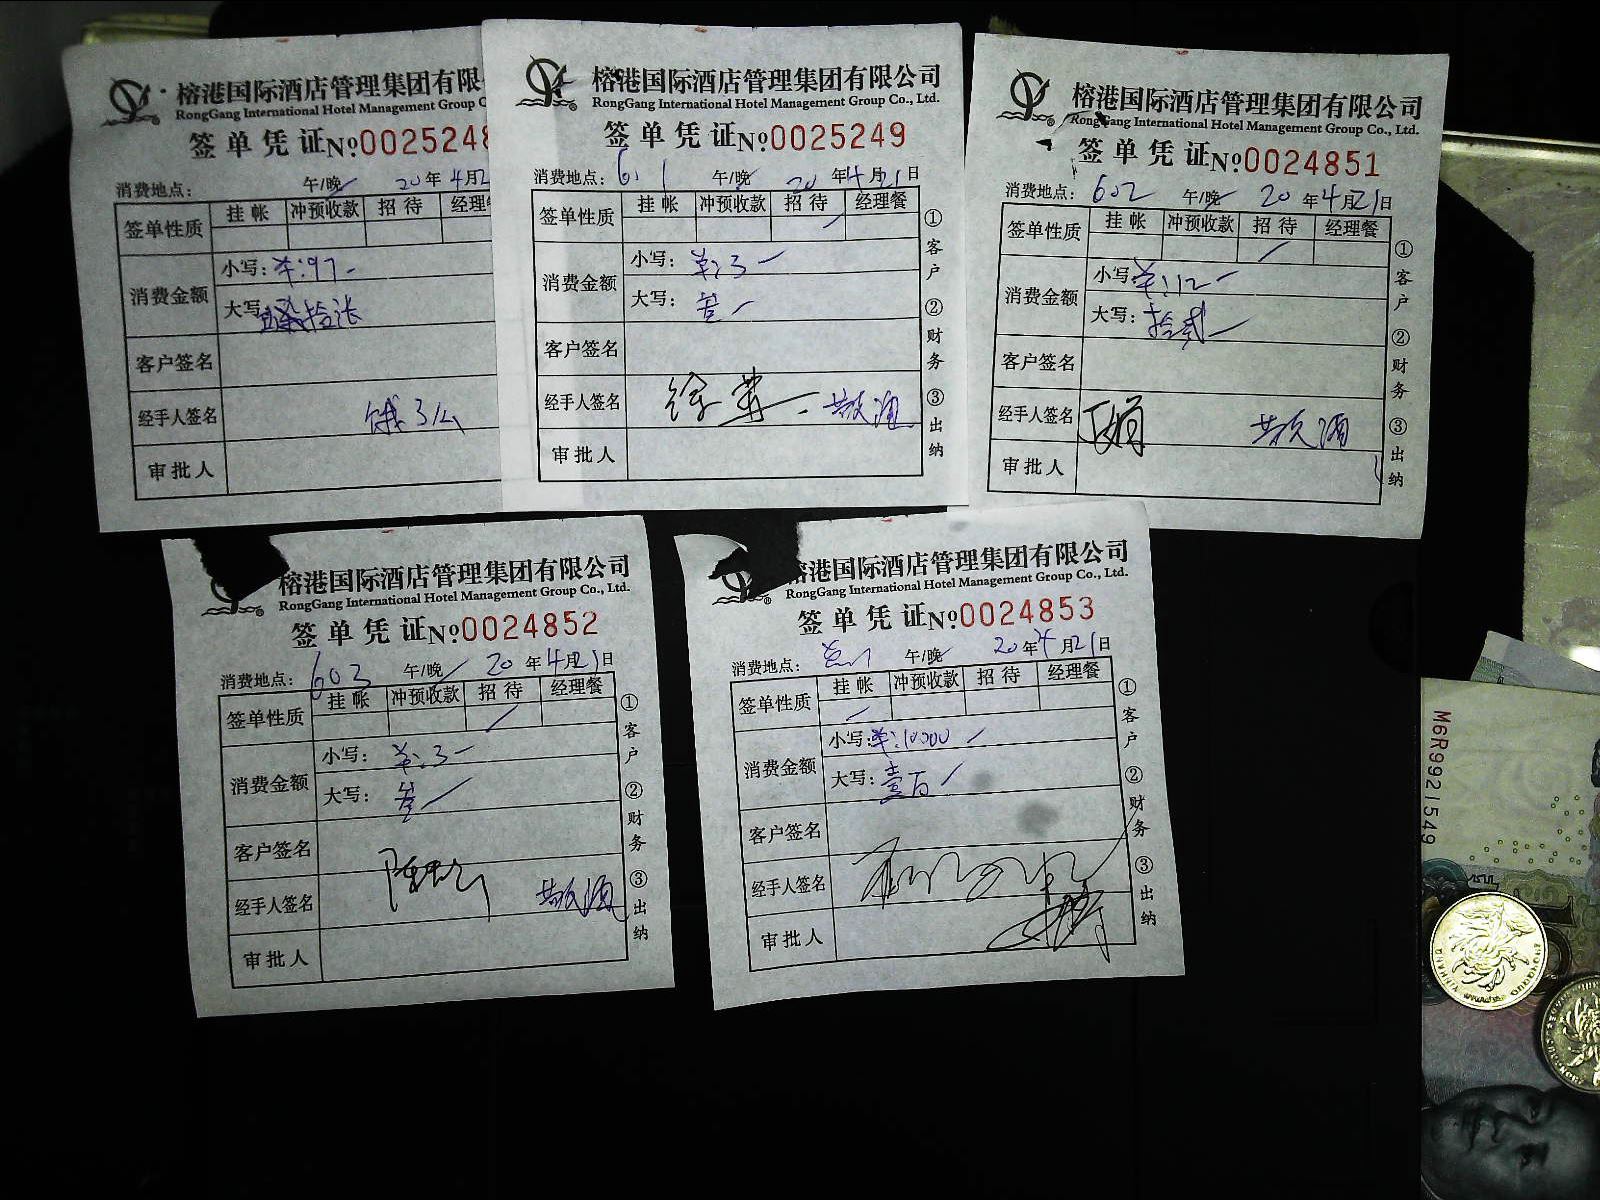 榕港国际酒店管理集团有限
RongGang International Hotel Management Group C
签单凭证 No 002524
消费地点： 午/晚 20 年 4 月 2
签单性质 挂帐 冲预收款 招待 经理
消费金额 小写：羊:97-
大写：
客户签名
经手人签名 饿了么
审批人
榕港国际酒店管理集团有限公司
RongGang International Hotel Management Group Co., Ltd.
签单凭证 No 0025249
消费地点： 午/晚 20 年 4 月 21 日
签单性质 挂帐 冲预收款 招待 经理餐
消费金额 小写：羊:3-
大写：叁-
客户签名
经手人签名 敬酒
审批人
①客户 ②财务 ③出纳
榕港国际酒店管理集团有限公司
RongGang International Hotel Management Group Co., Ltd.
签单凭证 No 0024851
消费地点：602 午/晚 20 年 4 月 21 日
签单性质 挂帐 冲预收款 招待 经理餐
消费金额 小写：羊:12-
大写：拾贰-
客户签名
经手人签名 敬酒
审批人
①客户 ②财务 ③出纳
榕港国际酒店管理集团有限公司
RongGang International Hotel Management Group Co., Ltd.
签单凭证 No 0024852
消费地点：603 午/晚 20 年 4 月 21 日
签单性质 挂帐 冲预收款 招待 经理餐
消费金额 小写：羊:3-
大写：叁-
客户签名
经手人签名 敬酒
审批人
①客户 ②财务 ③出纳
榕港国际酒店管理集团有限公司
RongGang International Hotel Management Group Co., Ltd.
签单凭证 No 0024853
消费地点： 午/晚 20 年 4 月 21 日
签单性质 挂帐 冲预收款 招待 经理餐
消费金额 小写：羊:10000
大写：壹百
客户签名
经手人签名
审批人
①客户 ②财务 ③出纳
M6R9921549